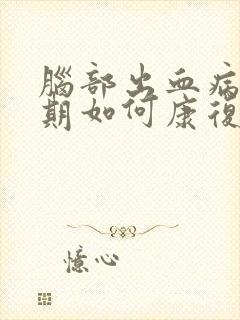 腦部出血病
期如何康復
憶心